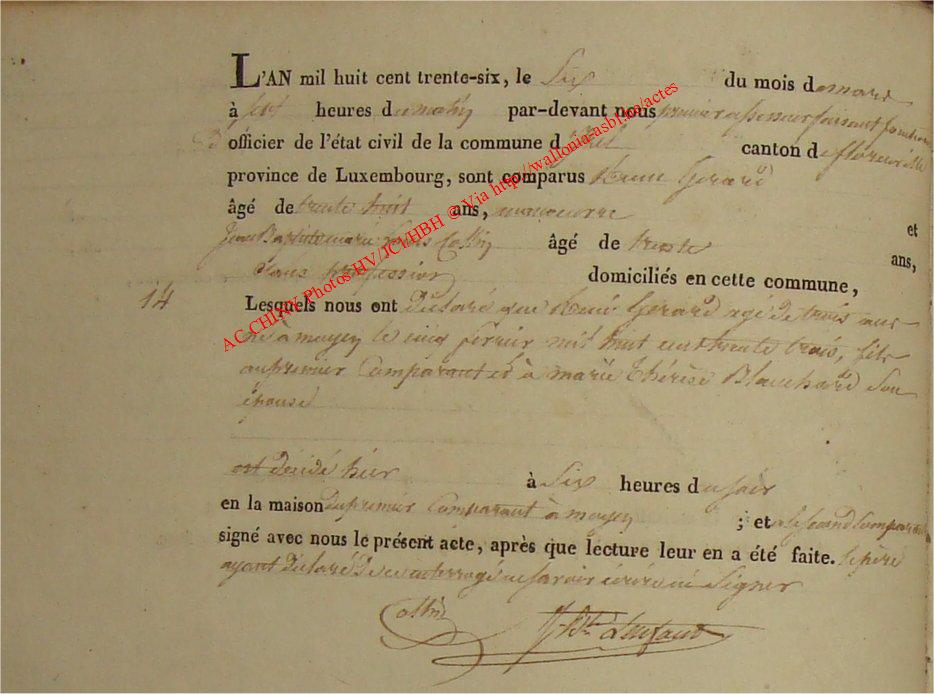 L'AN mil huit cent trente-six, le Six du mois de mars
à sept heures du matin par-devant nous premier assesseur faisant fonctions
d'officier de l'état civil de la commune d'izel canton de florenville
province de Luxembourg, sont comparus henri Gerard
âgé de trente huit ans, manoeuvre et
Jean Baptiste marie Louis Collin âgé de trente ans,
Sans profession domiciliés en cette commune,
14 Lesquels nous ont Déclaré que henri Gerard agé de trois ans
né à moyen le cinq fevrier mil huit cent trente trois, fils
au premier Comparant et à marie thérèse Blanchard Son
épouse
est décédé hier à Six heures du soir
en la maison du premier Comparant à moyen ; et a le second comparant
signé avec nous le présent acte, après que lecture leur en a été faite. le père
ayant Déclaré de ce interrogé ne savoir écrire ni Signer
Collin J-Bte
AC CHINY Photos HV/JCV/HBH @ Via http://wallonia-asbl.be/actes